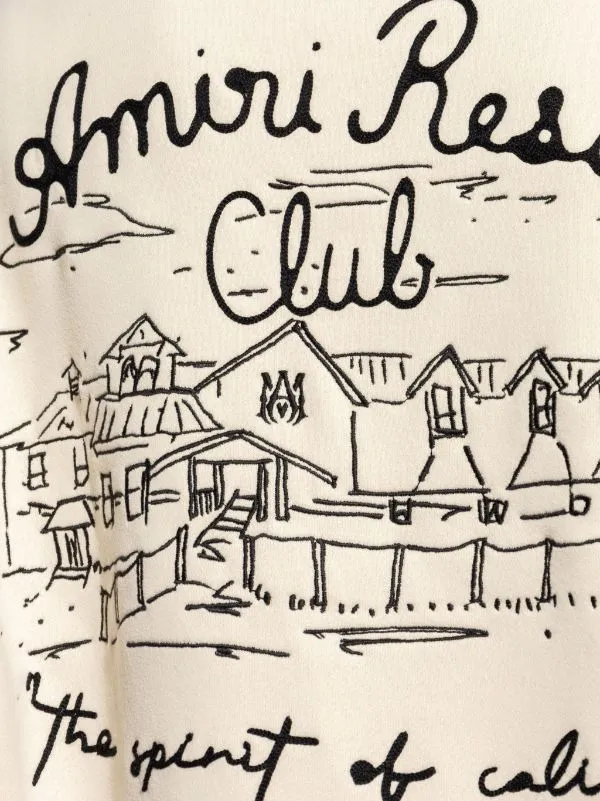 Amiri Reso
Club
MA
"The spirit of cali